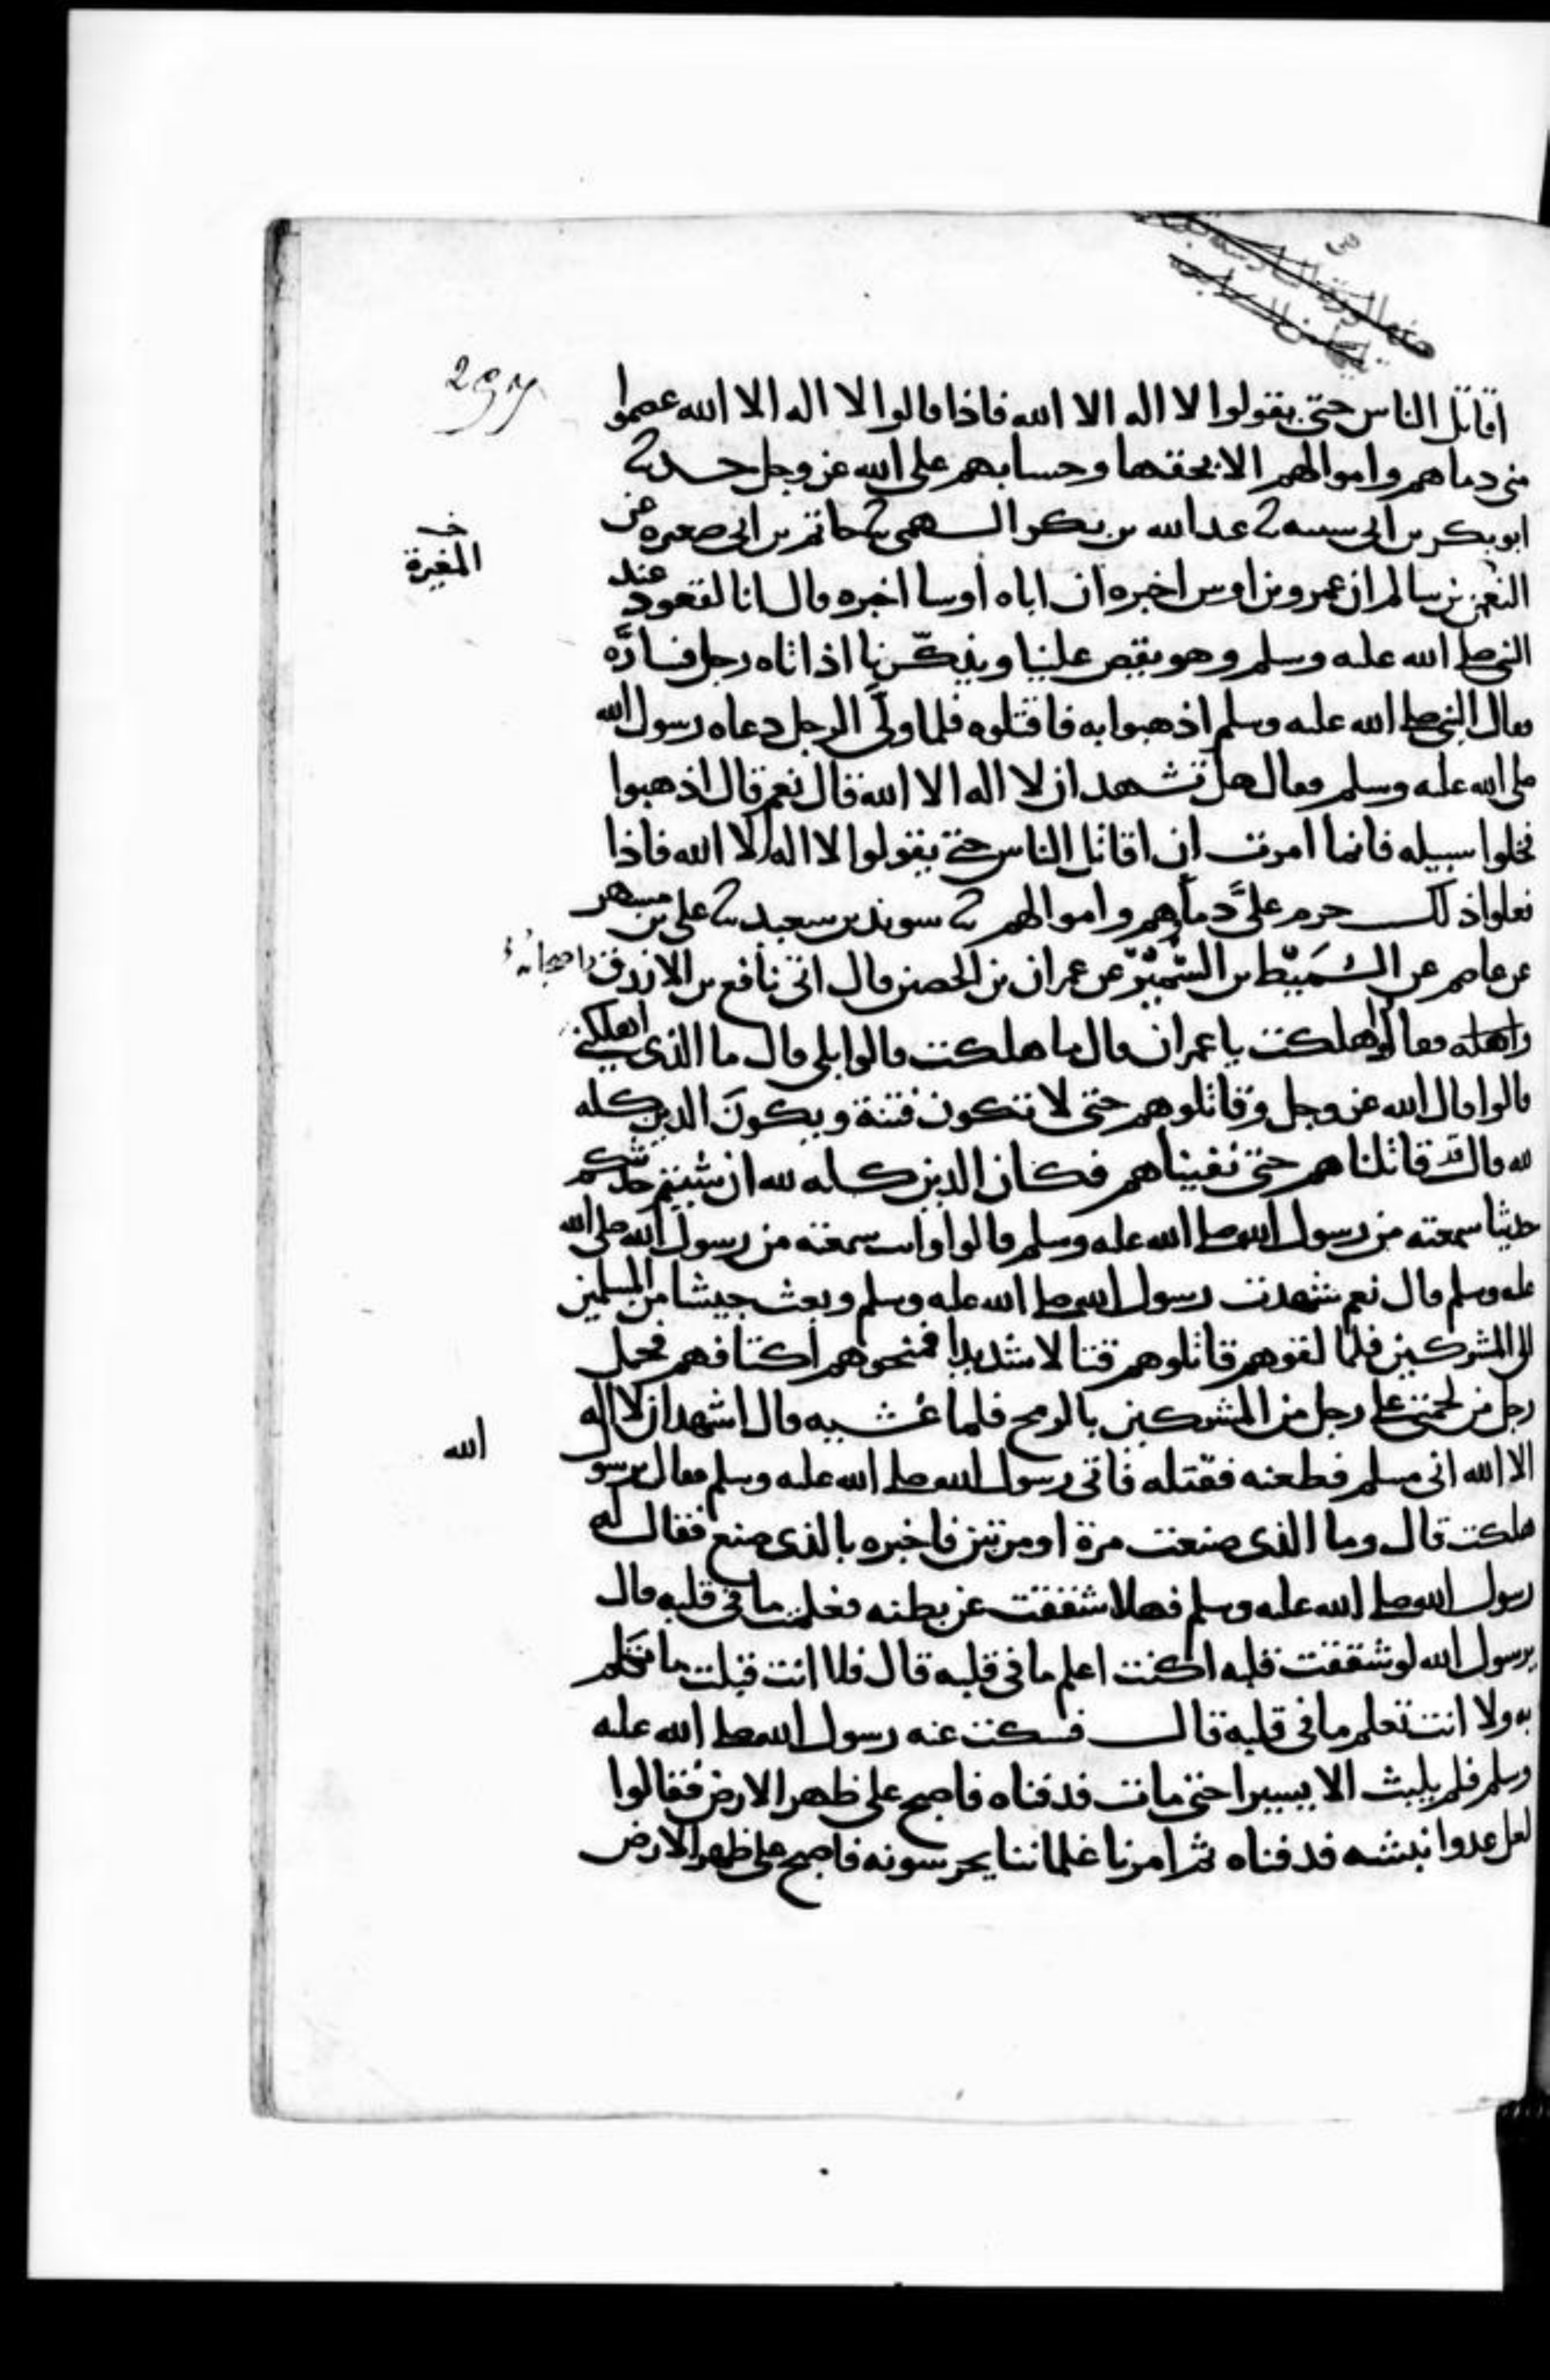 اقاتل الناس حتى يقولوا لا اله الا الله فاذا قالوا لا اله الا الله عصموا
منى دماهم واموالهم الا بحقها وحسابهم على الله عز وجل حدثنا
ابو بكر بن ابى شيبة ثنا عبد الله بن بكر السهمى ثنا حاتم بن ابى صغيره عن
النعمن بن سالم ان عمرو بن اوس اخبره ان اباه اوسا اخبره قال انا لقعود عند
النبى صلى الله عليه وسلم وهو يقص علينا ويذكّرنا اذ اتاه رجل فسارَّه
فقال النبى صلى الله عليه وسلم اذهبوا به فاقتلوه فلما ولَّى الرجل دعاه رسول الله
صلى الله عليه وسلم فقال هل تشهد ان لا اله الا الله قال نعم قال اذهبوا
فخلوا سبيله فانما امرت ان اقاتل الناس حتى يقولوا لا اله الا الله فاذا
فعلوا ذلك حرم علىَّ دماؤهم واموالهم ثنا سويد بن سعيد ثنا على بن مسهر
عن عاصم عن السُّمَيْط بن السُّمَيْر عن عمران بن الحصين قال اتى نافع بن الازرق واصحابه
فقالوا هلكت يا عمران قال ما هلكت قالوا بلى قال ما الذى اهلكنى
قالوا قال الله عز وجل وقاتلوهم حتى لا تكون فتنة ويكونَ الدين كله
لله قال قد قاتلناهم حتى نفيناهم فكان الدين كله لله ان شيتم حدثتكم
حديثا سمعته من رسول الله صلى الله عليه وسلم قالوا وانت سمعته من رسول الله صلى الله
عليه وسلم قال نعم شهدت رسول الله صلى الله عليه وسلم وبعث جيشا من المسلمين
الى المشركين فلما لقوهم قاتلوهم قتالا شديدا فمنحوهم اكتافهم فحمل
رجل من لحمتى على رجل من المشركين بالرمح فلما غشيه قال اشهد ان لا اله
الا الله انى مسلم فطعنه فقتله فاتى رسول الله صلى الله عليه وسلم فقال يرسول
هلكت قال وما الذى صنعت مرة او مرتين فاخبره بالذى صنع فقال له
رسول الله صلى الله عليه وسلم فهلا شققت عن بطنه فعلمت ما فى قلبه قال
يرسول الله لو شققت قلبه اكنت اعلم ما فى قلبه قال فلا انت قبلت ما تكلم
به ولا انت تعلم ما فى قلبه قال فسكت عنه رسول الله صلى الله عليه
وسلم فلم يلبث الا يسيرا حتى مات فدفناه فاصبح على ظهر الارض فقالوا
لعل عدوا نبشه فدفناه ثم امرنا غلماننا يحرسونه فاصبح على ظهر الارض
خـ
المغيرة
الله